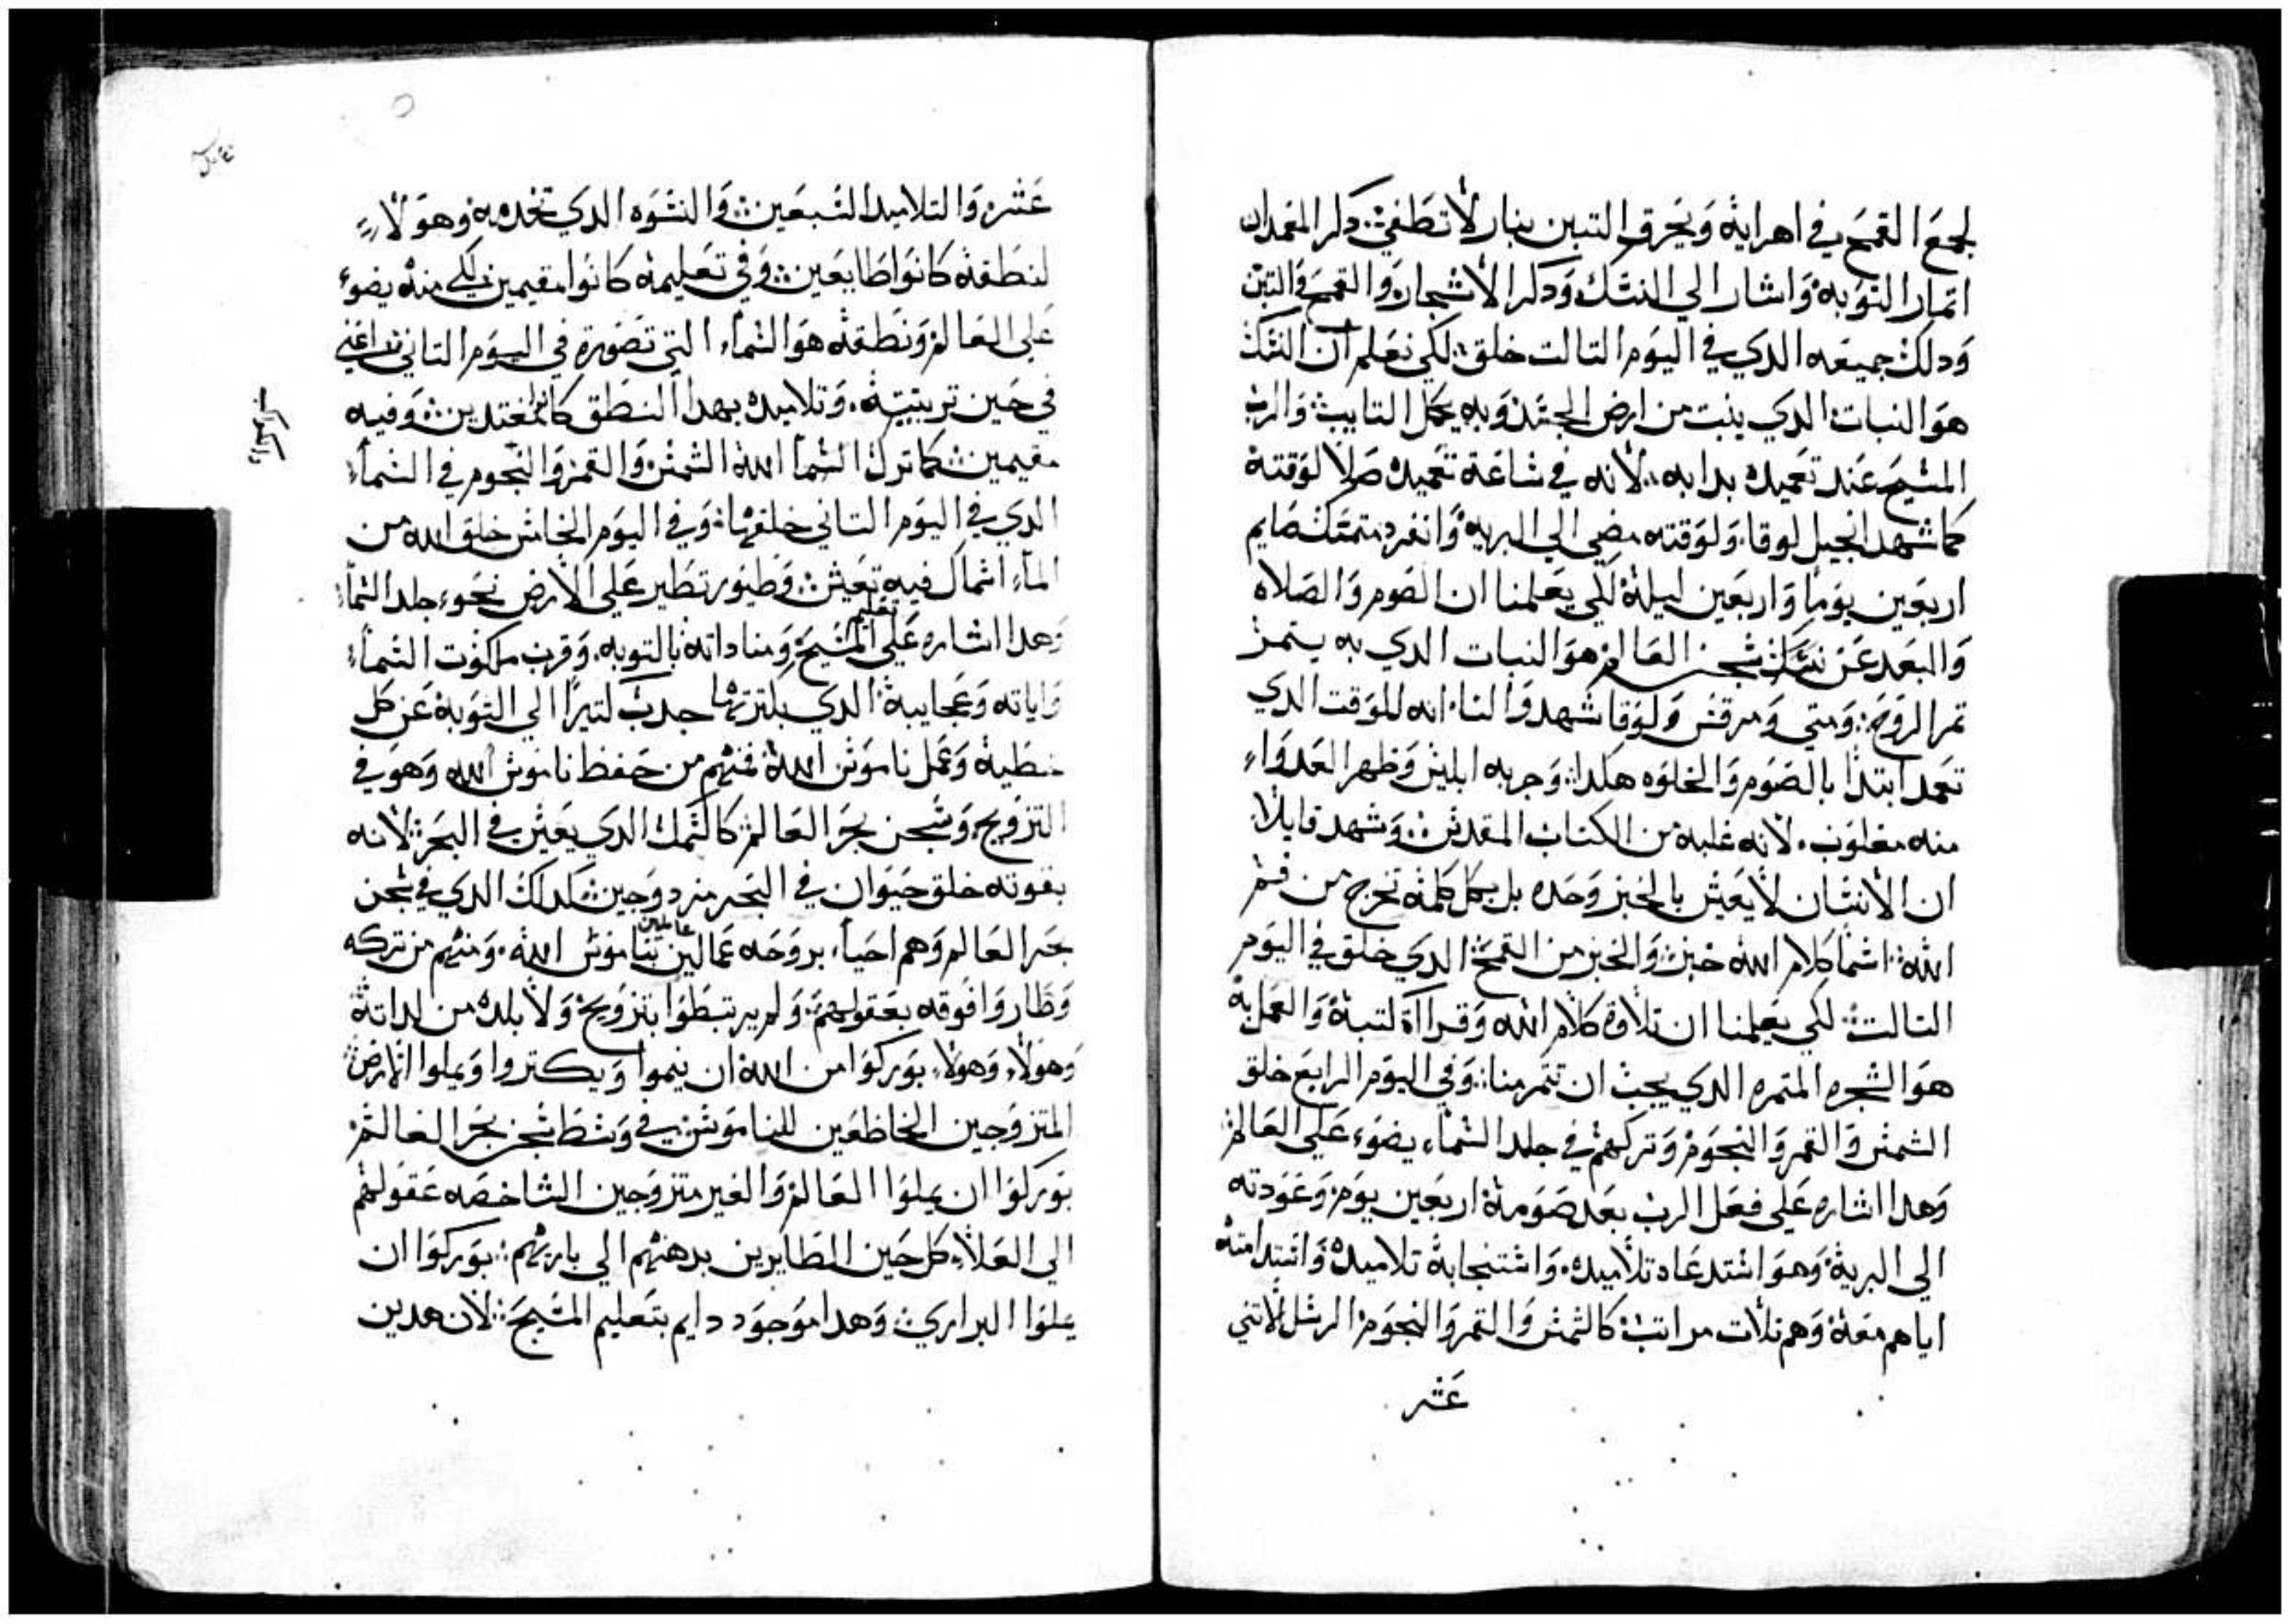 لجمع القمح في اهرايه وَيحرق التبن بنار لاتطفي دكر المعمدان
اتمار التوبه وَاشار الي النسك وَدكر الاشجار وَالقمح وَالتبن
وَدلك جميعه الدي في اليوم التالت خلق لكي نعلم ان النسك
هوَ النبات الدي ينبت من ارض الجسد وَبه يكمل التايب وَالرب
المسيح عند تعميده بدا به لانه في ساعة تعميده صلا لوقته
كما شهد انجيل لوقا وَلوقته مضي الي البريه وَانفرد متمسك صايم
اربعين يوما وَاربعين ليلة لكي يعلمنا ان الصوم وَالصلاه
وَالبعد عن سجس العالم هوَ النبات الدي به يتمر
تمر الروح وَمتي وَمرقس وَلوقا شهدوَا لنا انه للوقت الدي
تعمد ابتدا بالصوم وَالخلوه هكدا وَجربه ابليس وَظهر العدوَا
منه مغلوب لانه غلبه من الكتاب المقدس وَشهد قايلا
ان الانسان لايعيش بالخبز وَحده بل بكل كلمة تخرج من فم
الله اسما كلام الله خبز وَالخبز من القمح الدي خلق في اليوم
التالت لكي يعلمنا ان تلاوة كلام الله وَقرااة كتبه وَالعمل به
هوَ الشجره المتمره الدي يجب ان تتمر منا وَفي اليوم الرابع خلق
الشمس وَالقمر وَالنجوم وَتركهم في جلد السماء يضوء علي العالم
وَهدا اشاره علي فعل الرب بعد صومة اربعين يوم وَعودته
الي البرية وَهوَ استدعاه تلاميده وَاستنجابة تلاميده وَاستدامته
اياهم معة وَهم تلات مراتب كالشمس وَالقمر وَالنجوم الرسل الاتني
عشر
عشر وَالتلاميد السبعين وَالنسوه الدي تخدمه وَهولاء
لنطقة كانوا طايعين وَفي تعليمة كانوا مقيمين لكي منه يضوء
علي العالم وَنطقه هوَ السماء التي تصورة في اليوم التاني اعني
في حين تربيتة وَتلاميده بهدا النطق كانوا مغتديين وَفيه
مقيمين كما ترك الله الشمس وَالقمر وَالنجوم في السماء
الدي في اليوم التاني خلقها وَفي اليوم الخامس خلق الله من
الماء اسماك فيه تعيش وَطيور تطير علي الارض نحوء جلد السماء
وَهدا اشاره علي تعليم المسيح وَمناداته بالتوبه وَقرب ملكوت السماء
وَاياته وَعجايبة الدي بكترتها جدب كتيرا الي التوبة عن كل
خطية وَعمل ناموس الله فمنهم من حفظ ناموس الله وَهوَ في
التزويج وَسجن بحر العالم كالسمك الدي يعيش في البحر لانه
بقوته خلق حيوان في البحر مزدوجين كدلك الدي في سجن
بحر العالم وَهم احياء بروحه عاملين بناموس الله وَمنهم من تركه
وَطاروَا فوقه بعقولهم وَلم يرتبطوا بتزويج وَلا بلده من لداتة
وَهولاء وَهولاء بوركوا من الله ان ينموا وَيكتروا وَيملوا الارض
المتزوجين الخاضعين للناموس في وَسط سجن بحر العالم
بوركوا ان يملوا العالم وَالغير متزوجين الشاخصه عقولهم
الي العلاء كل حين الطايرين بدهنهم الي باريهم بوركوا ان
يملوا البراري وَهدا موجود دايم بتعليم المسيح لان هدين